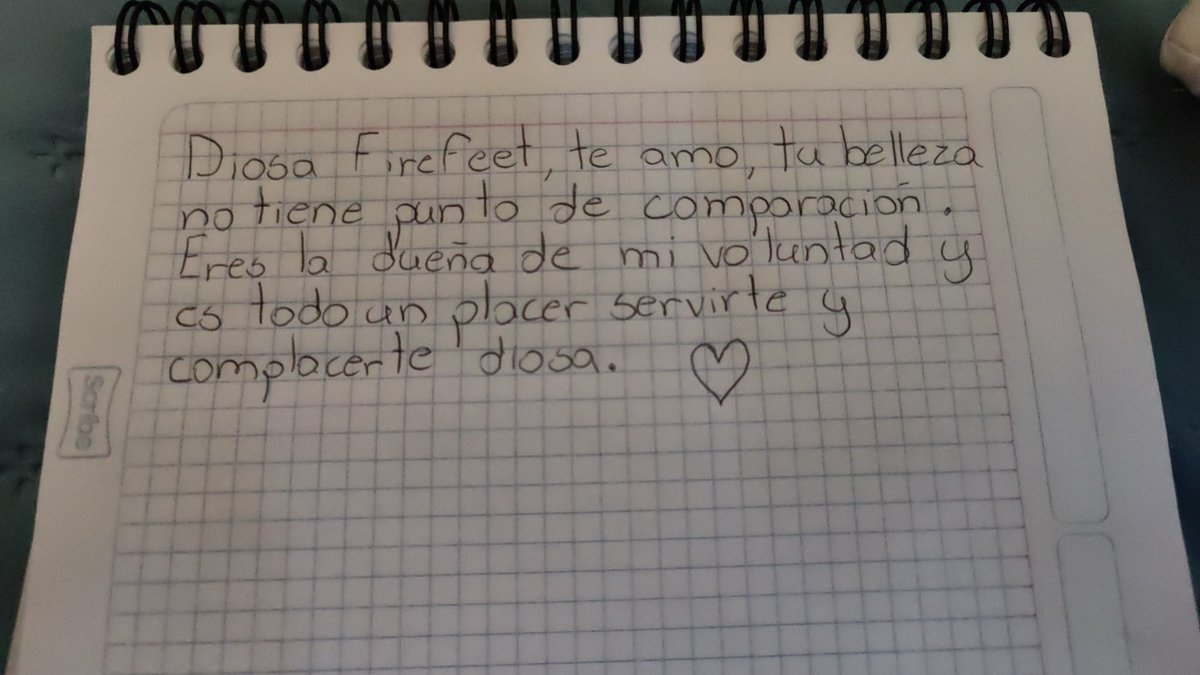 Diosa Firefeet, te amo, tu belleza
no tiene punto de comparación.
Eres la dueña de mi voluntad y
es todo un placer servirte y
complacerte diosa. ♡
Scribe